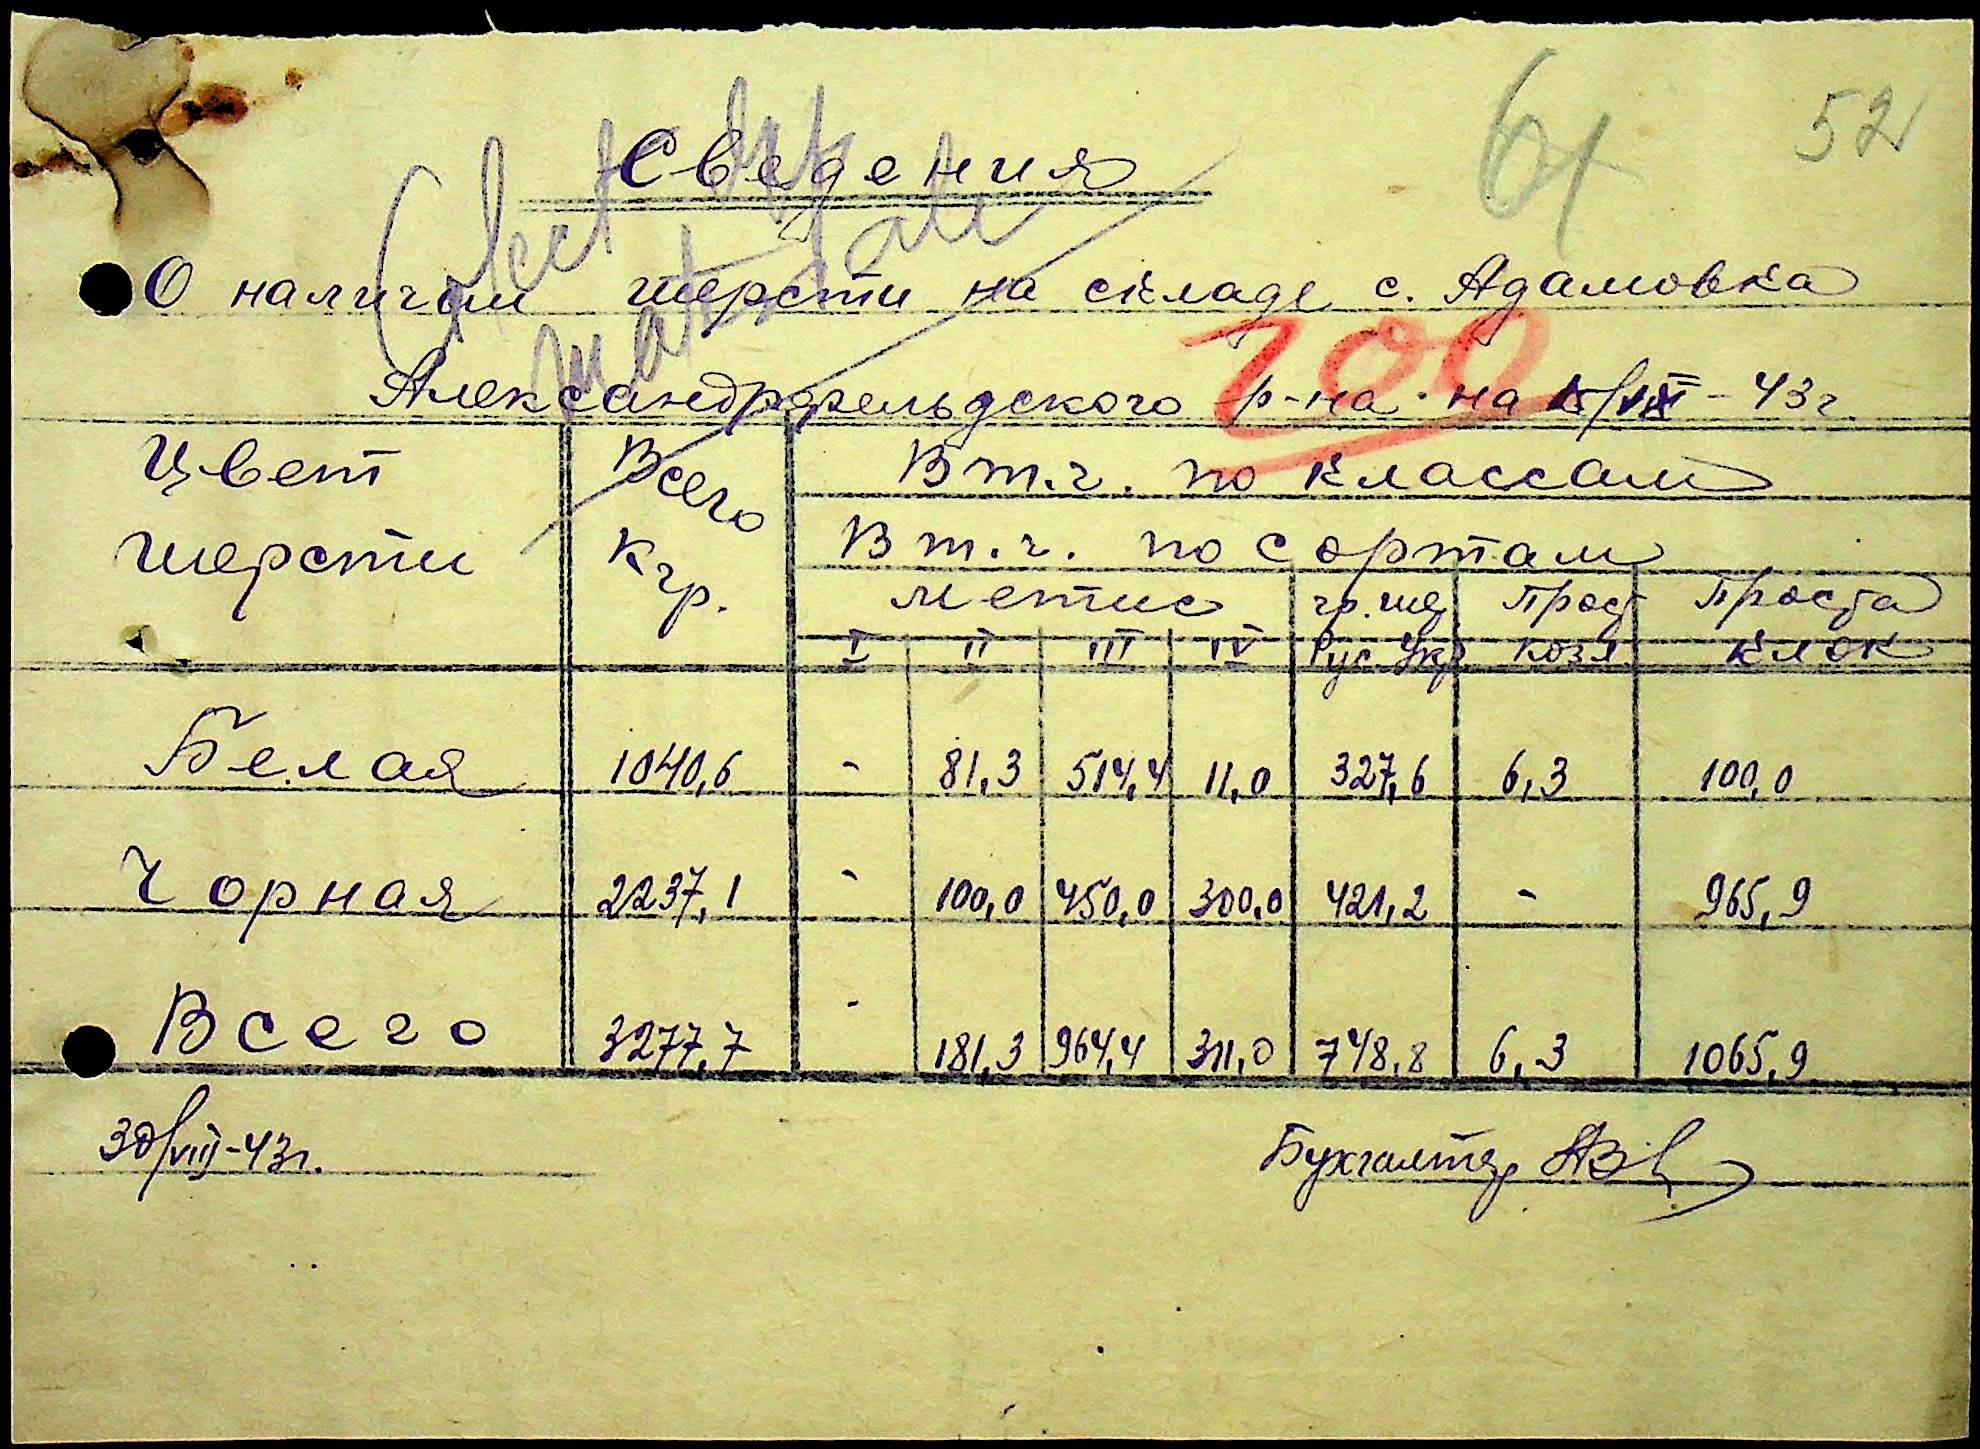 52
61
Сведения
О наличии шерсти на складе с. Адамовка
200
Александрфельдского р-на на /VIII – 43 г.
Цвет шерсти Всего Кгр. В т.ч. по классам
В т.ч. по сортам
метис гр. шер Прост Проста
I II III IV Рус. Укр. козя клок
Белая 1040,6 - 81,3 514,4 11,0 327,6 6,3 100,0
Чорная 2237,1 - 100,0 450,0 300,0 421,2 - 965,9
Всего 3277,7 - 181,3 964,4 311,0 748,8 6,3 1065,9
30/VIII-43г. Бухгалтер